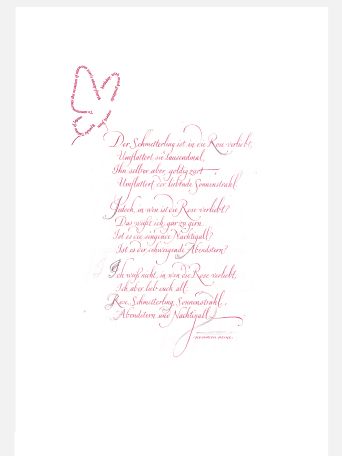 Der Schmetterling ist in die Rose verliebt,
Umflattert sie tausendmal,
Ihn selber aber, goldig zart
Umflattert der liebende Sonnenstrahl.
Jedoch, in wen ist die Rose verliebt?
Das wüßt ich gar zu gern.
Ist es die singende Nachtigall?
Ist es der schweigende Abendstern?
Ich weiß nicht, in wen die Rose verliebt,
Ich aber lieb euch all:
Rose, Schmetterling, Sonnenstrahl,
Abendstern und Nachtigall.
HEINRICH HEINE